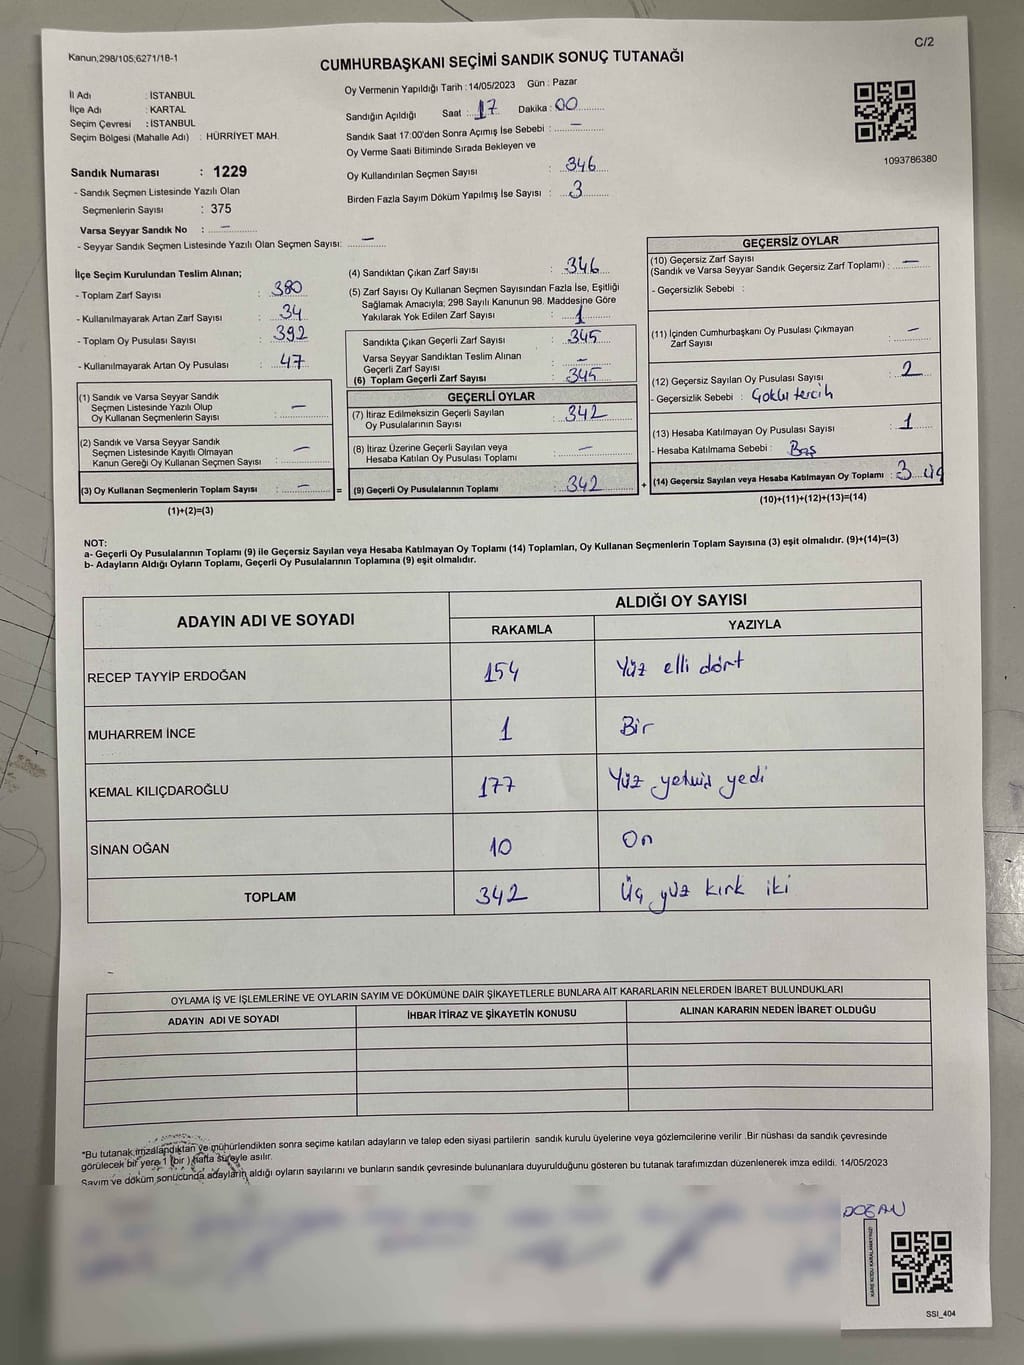 Kanun;298/105;6271/18-1
C/2
CUMHURBAŞKANI SEÇİMİ SANDIK SONUÇ TUTANAĞI
İl Adı : İSTANBUL
İlçe Adı : KARTAL
Seçim Çevresi : İSTANBUL
Seçim Bölgesi (Mahalle Adı) : HÜRRİYET MAH.
Oy Vermenin Yapıldığı Tarih : 14/05/2023 Gün : Pazar
Sandığın Açıldığı Saat : 17 Dakika : 00
Sandık Saat 17:00'den Sonra Açımış İse Sebebi : —
Oy Verme Saati Bitiminde Sırada Bekleyen ve
Oy Kullandırılan Seçmen Sayısı : 346
Birden Fazla Sayım Döküm Yapılmış İse Sayısı : 3
1093786380
Sandık Numarası : 1229
- Sandık Seçmen Listesinde Yazılı Olan
Seçmenlerin Sayısı : 375
Varsa Seyyar Sandık No : —
- Seyyar Sandık Seçmen Listesinde Yazılı Olan Seçmen Sayısı: —
İlçe Seçim Kurulundan Teslim Alınan;
- Toplam Zarf Sayısı : 380
- Kullanılmayarak Artan Zarf Sayısı : 34
- Toplam Oy Pusulası Sayısı : 392
- Kullanılmayarak Artan Oy Pusulası : 47
(1) Sandık ve Varsa Seyyar Sandık
Seçmen Listesinde Yazılı Olup
Oy Kullanan Seçmenlerin Sayısı : —
(2) Sandık ve Varsa Seyyar Sandık
Seçmen Listesinde Kayıtlı Olmayan
Kanun Gereği Oy Kullanan Seçmen Sayısı : —
(3) Oy Kullanan Seçmenlerin Toplam Sayısı : — =
(1)+(2)=(3)
(4) Sandıktan Çıkan Zarf Sayısı : 346
(5) Zarf Sayısı Oy Kullanan Seçmen Sayısından Fazla İse, Eşitliği
Sağlamak Amacıyla; 298 Sayılı Kanunun 98. Maddesine Göre
Yakılarak Yok Edilen Zarf Sayısı : 1
Sandıkta Çıkan Geçerli Zarf Sayısı : 345
Varsa Seyyar Sandıktan Teslim Alınan
Geçerli Zarf Sayısı : —
(6) Toplam Geçerli Zarf Sayısı : 345
GEÇERLİ OYLAR
(7) İtiraz Edilmeksizin Geçerli Sayılan
Oy Pusulalarının Sayısı : 342
(8) İtiraz Üzerine Geçerli Sayılan veya
Hesaba Katılan Oy Pusulası Toplamı : —
(9) Geçerli Oy Pusulalarının Toplamı : 342 +
GEÇERSİZ OYLAR
(10) Geçersiz Zarf Sayısı
(Sandık ve Varsa Seyyar Sandık Geçersiz Zarf Toplamı) : —
- Geçersizlik Sebebi :
(11) İçinden Cumhurbaşkanı Oy Pusulası Çıkmayan
Zarf Sayısı : —
(12) Geçersiz Sayılan Oy Pusulası Sayısı : 2
- Geçersizlik Sebebi : Çoklu tercih
(13) Hesaba Katılmayan Oy Pusulası Sayısı : 1
- Hesaba Katılmama Sebebi : Boş
(14) Geçersiz Sayılan veya Hesaba Katılmayan Oy Toplamı : 3 üç
(10)+(11)+(12)+(13)=(14)
NOT:
a- Geçerli Oy Pusulalarının Toplamı (9) ile Geçersiz Sayılan veya Hesaba Katılmayan Oy Toplamı (14) Toplamları, Oy Kullanan Seçmenlerin Toplam Sayısına (3) eşit olmalıdır. (9)+(14)=(3)
b- Adayların Aldığı Oyların Toplamı, Geçerli Oy Pusulalarının Toplamına (9) eşit olmalıdır.
ADAYIN ADI VE SOYADI ALDIĞI OY SAYISI
RAKAMLA YAZIYLA
RECEP TAYYİP ERDOĞAN 154 Yüz elli dört
MUHARREM İNCE 1 Bir
KEMAL KILIÇDAROĞLU 177 Yüz yetmiş yedi
SİNAN OĞAN 10 On
TOPLAM 342 Üç yüz kırk iki
OYLAMA İŞ VE İŞLEMLERİNE VE OYLARIN SAYIM VE DÖKÜMÜNE DAİR ŞİKAYETLERLE BUNLARA AİT KARARLARIN NELERDEN İBARET BULUNDUKLARI
ADAYIN ADI VE SOYADI İHBAR İTİRAZ VE ŞİKAYETİN KONUSU ALINAN KARARIN NEDEN İBARET OLDUĞU
*Bu tutanak,imzalandıktan ve mühürlendikten sonra seçime katılan adayların ve talep eden siyasi partilerin sandık kurulu üyelerine veya gözlemcilerine verilir .Bir nüshası da sandık çevresinde
görülecek bir yere 1 (bir ) hafta süreyle asılır.
Sayım ve döküm sonucunda adayların aldığı oyların sayılarını ve bunların sandık çevresinde bulunanlara duyurulduğunu gösteren bu tutanak tarafımızdan düzenlenerek imza edildi. 14/05/2023
DOĞAN
KARE KODU KARALAMAYINIZ!
SSI_404